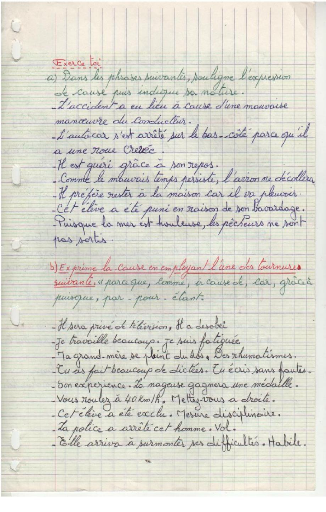 Exerce toi
a) Dans les phrases suivantes, souligne l'expression
de cause puis indique sa nature.
- L'accident a eu lieu à cause d'une mauvaise
manœuvre du conducteur.
- L'autocar s'est arrêté sur le bas-côté parce qu'il
a une roue crevée.
- Il est guéri grâce à son repos.
- Comme le mauvais temps persiste, l'avion ne décollera
- Il préfère rester à la maison car il va pleuvoir.
- Cet élève a été puni en raison de son bavardage.
- Puisque la mer est houleuse, les pêcheurs ne sont
pas sortis.
b) Exprime la cause en employant l'une des tournures
suivantes : parce que, comme, à cause de, car, grâce à
puisque, par - pour - étant.
- Il sera privé de télévision, Il a désobéi
- Je travaille beaucoup. Je suis fatiguée
- Ma grand-mère se plaint du dos. Des rhumatismes.
- Tu as fait beaucoup de dictées. Tu écris sans fautes.
- Son expérience. La nageuse gagnera une médaille.
- Vous roulez à 40 km/h. Mettez-vous à droite.
- Cet élève a été exclu. Mesure disciplinaire.
- La police a arrêté cet homme. Vol.
- Elle arriva à surmonter ses difficultés. Habile.